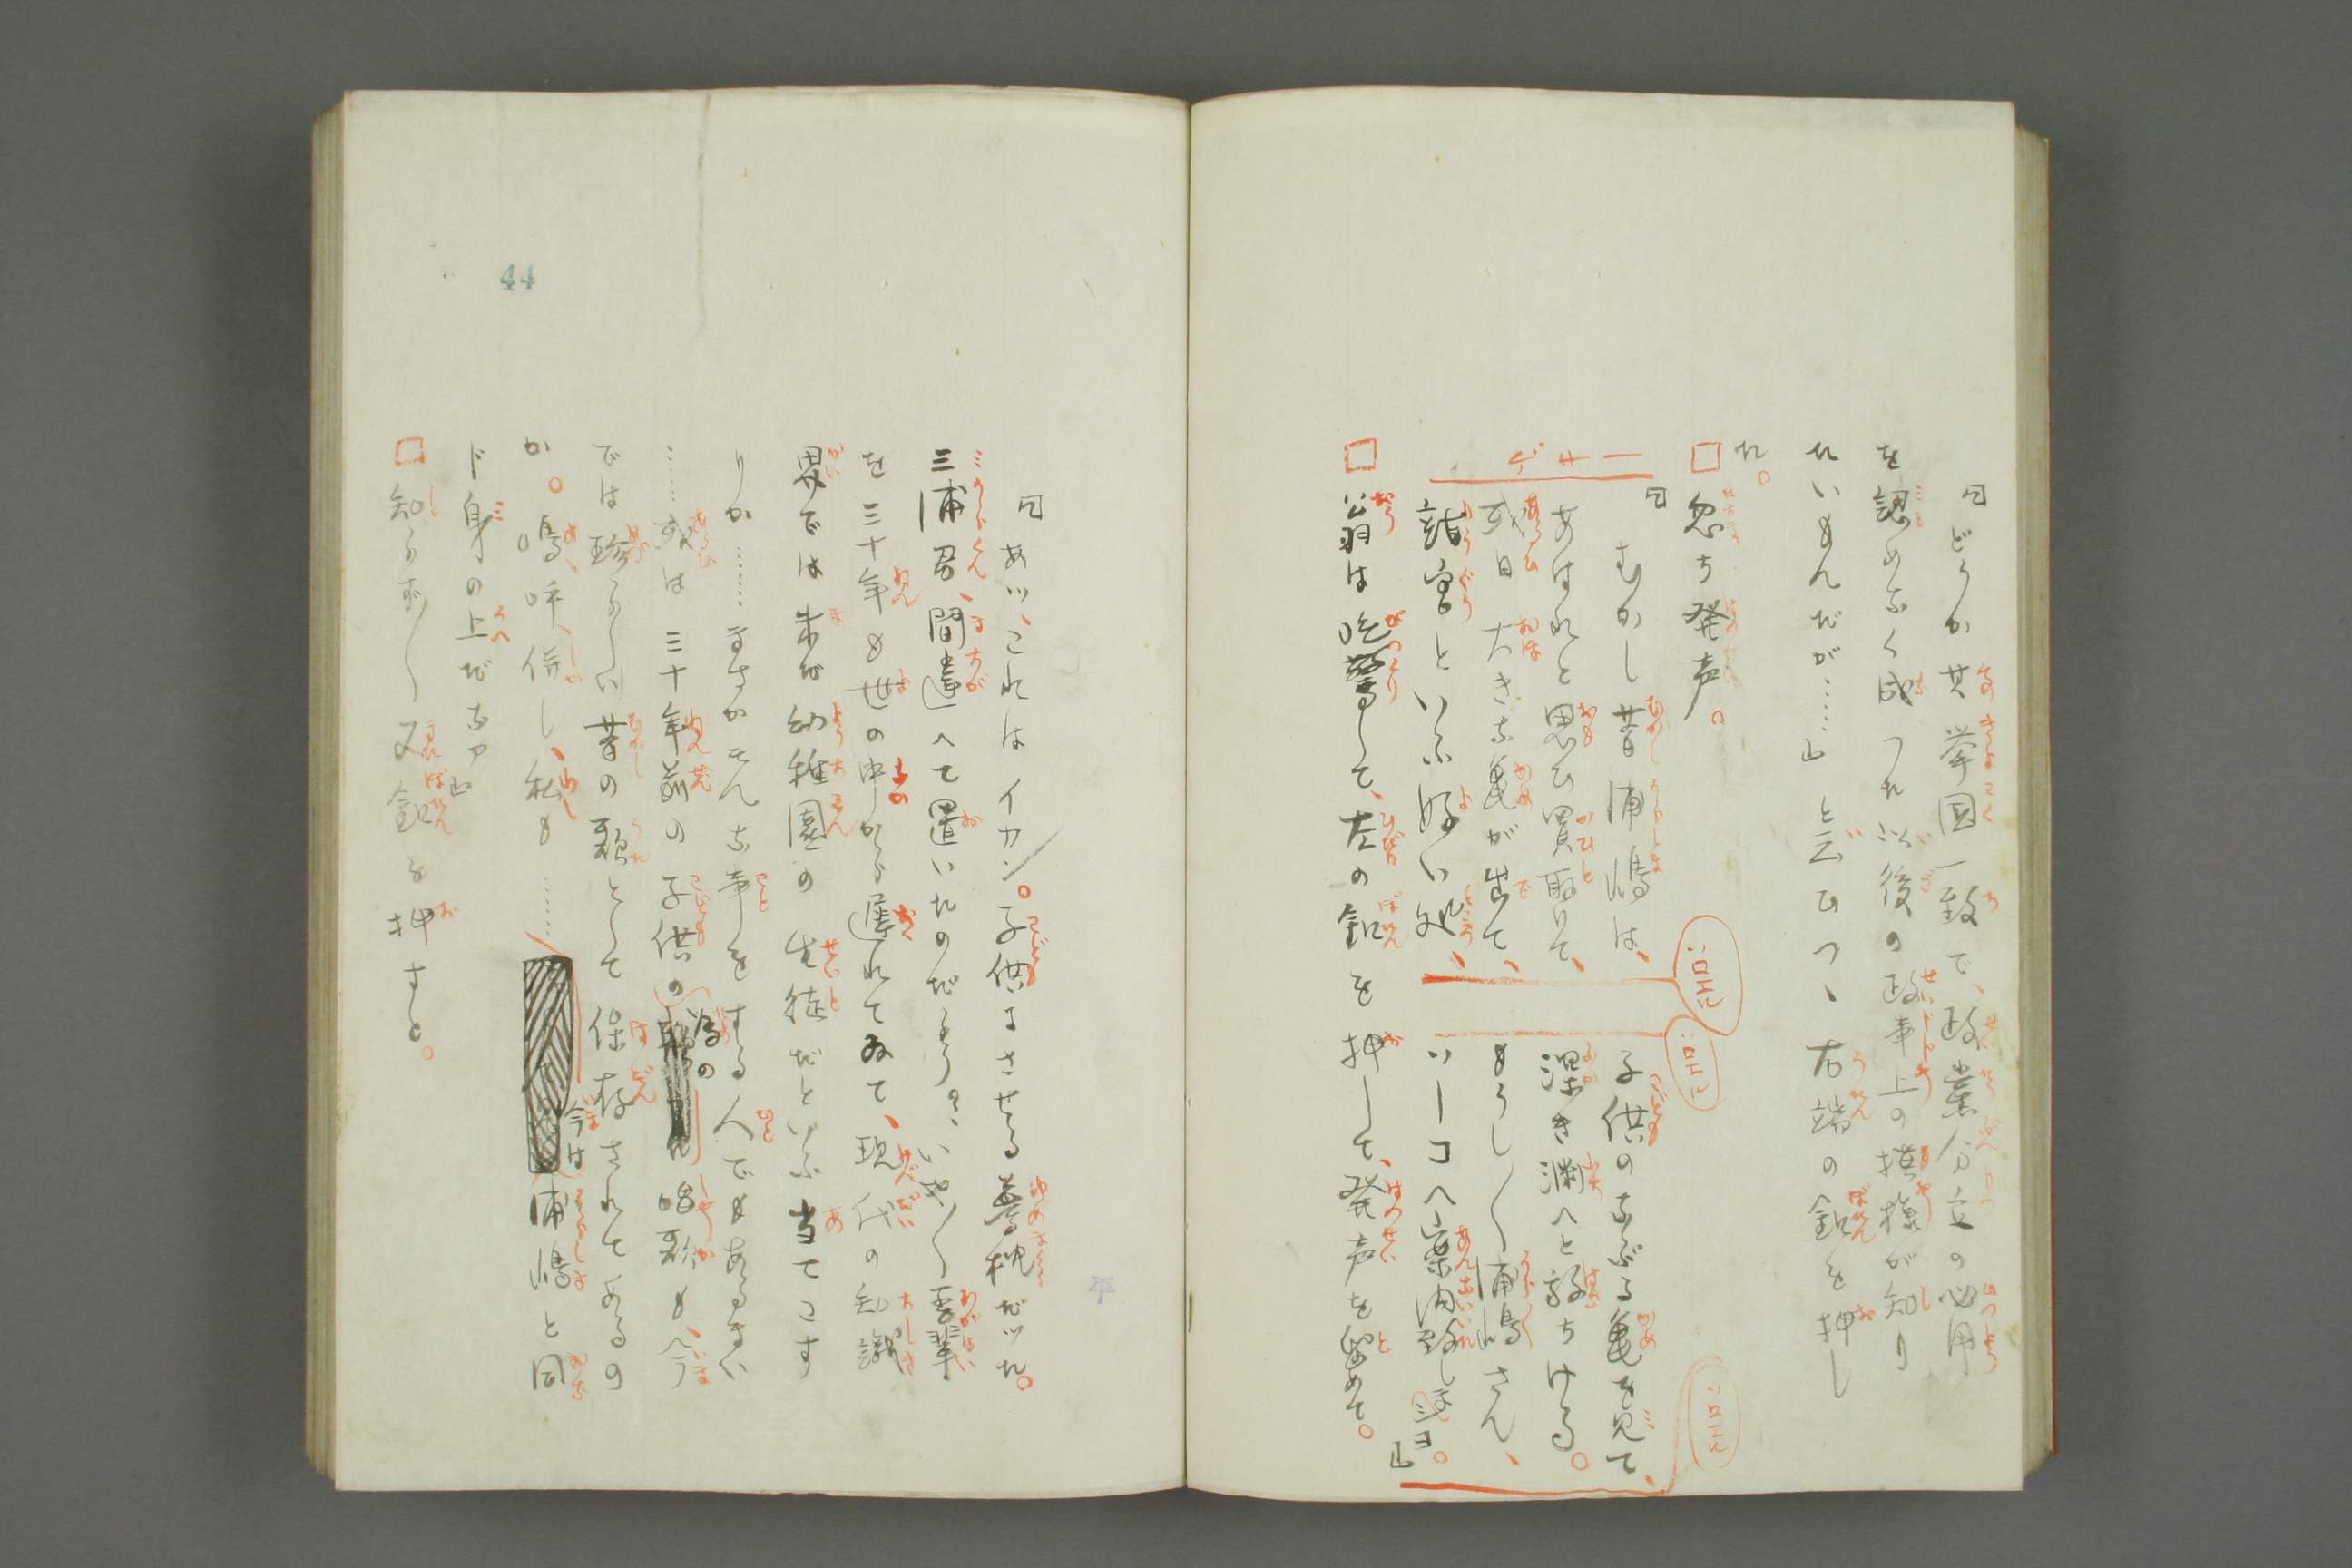 「どうか其挙国一致で、政業分立の必用
を認めなく成つた以後の政事上の摸様が知り
たいもんだが……」と云ひつゝ右端の釦を押し
た。
□忽ち発声。
「むかし昔浦嶋は、
子供のなぶる亀を見て、
あはれと思ひ買取りて、
深き淵へと放ちける。
或日大きな亀が出て、
もうし〳〵浦嶋さん、
龍宮といふ好い処、
ソーコへ案内致しましヨ。」
□翁は吃驚して、左の釦を押して、発声を留めて。
「あツ、これはイカン。子供にきせる夢枕だッた。
三浦君、間違へて置いたのだらう。いや〳〵吾輩
を三十年も世の中から遅れてゐて、現代の知識
界では未だ幼稚園の生徒だといふ当てこす
りか……まさかそんな事をする人でもあるまい
……或は三十年前の子供の為の唱歌も、今
では珍らしい昔の歌として保存されてあるの
か。嗚呼、併し、私も……今は浦嶋と同
ド身の上だなア」
□知らず〳〵又釦を押すと。
44
ゲサ一